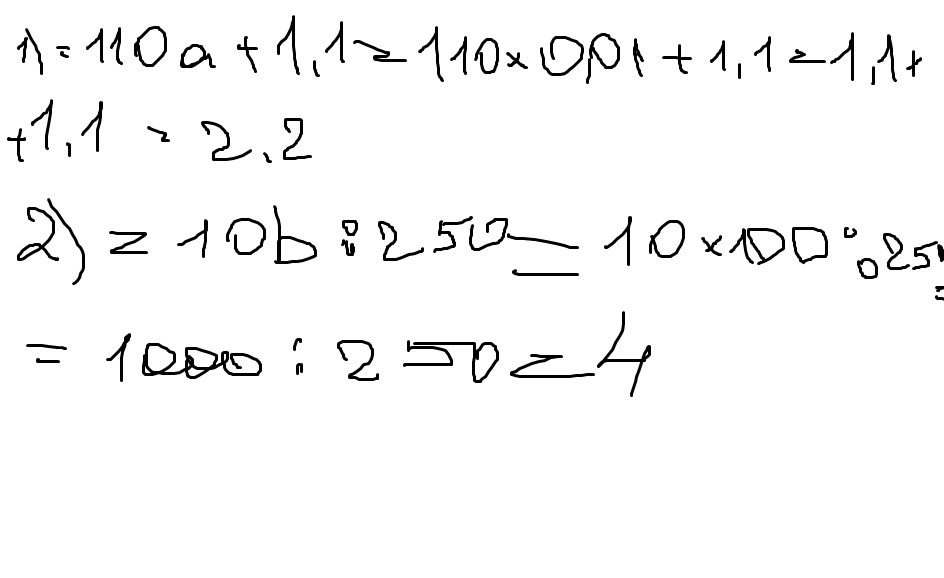 1) = 110a + 1,1 = 110 × 0,01 + 1,1 = 1,1 +
+ 1,1 = 2,2
2) = 10b : 250 = 10 × 100 : 250 =
= 1000 : 250 = 4